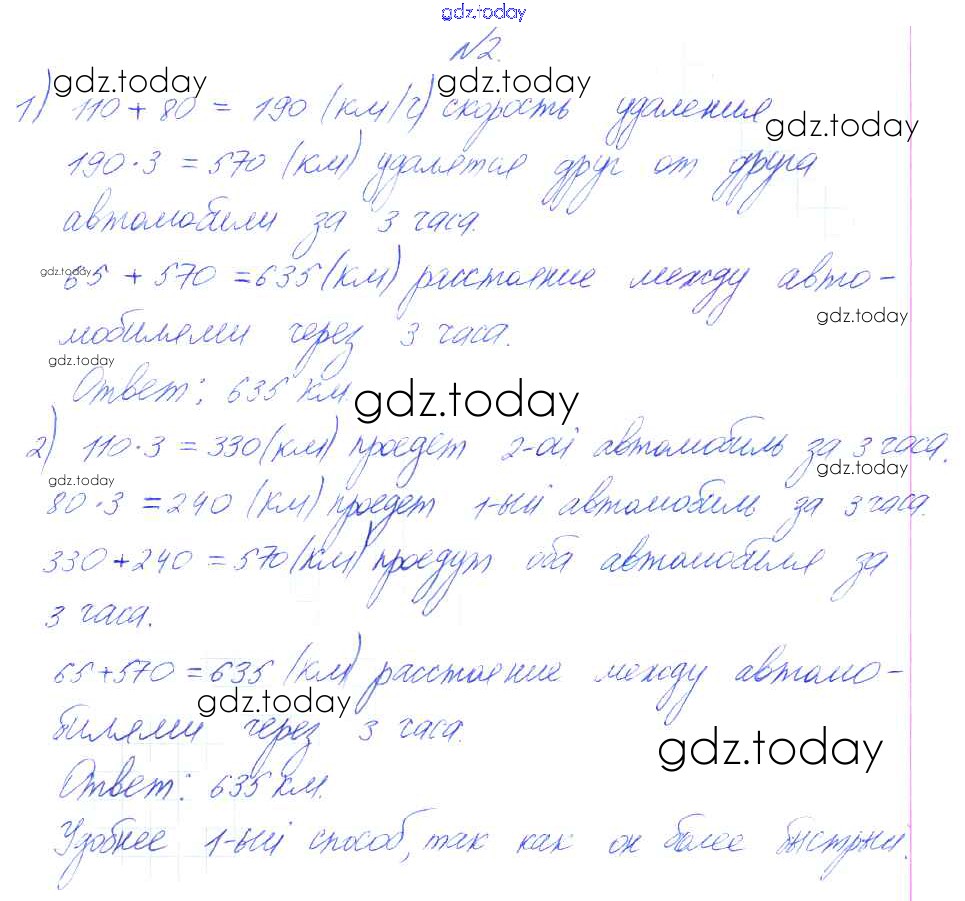 gdz.today
№2.
gdz.today
1) 110 + 80 = 190 (км/ч) скорость удаления
gdz.today
190·3 = 570 (км) удалятся друг от друга
автомобили за 3 часа.
gdz.today
65 + 570 = 635 (км) расстояние между авто-
gdz.today
мобилями через 3 часа.
gdz.today
Ответ: 635 км.
gdz.today
2) 110·3 = 330 (км) проедет 2-ой автомобиль за 3 часа.
gdz.today
gdz.today
80·3 = 240 (км) проедет 1-ый автомобиль за 3 часа.
330 + 240 = 570 (км) проедут оба автомобиля за
3 часа.
65 + 570 = 635 (км) расстояние между автомо-
gdz.today
билями через 3 часа.
gdz.today
Ответ: 635 км.
Удобнее 1-ый способ, так как он более быстрый.